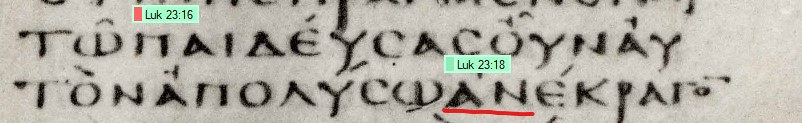 Luk 23:16
ΤΩ͂ΠΑΙΔΕΎϹΑϹΟΥ͂ΝἈΥ
Luk 23:18
ΤῸΝἈΠΟΛΎϹΩἈΝΈΚΡΑΓΟ̅